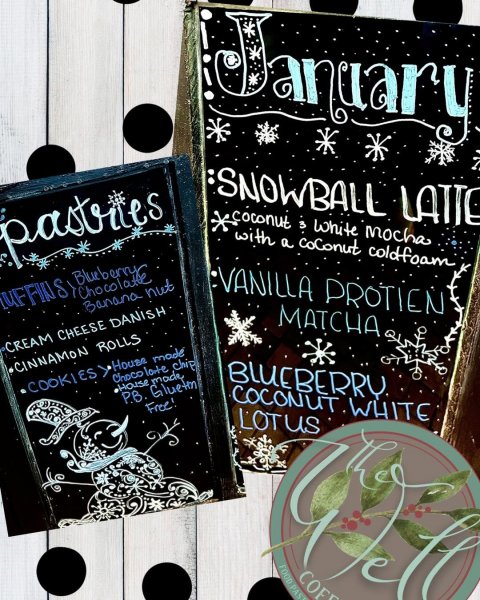 January
SNOWBALL LATTE
coconut & white mocha
with a coconut coldfoam
VANILLA PROTIEN
MATCHA
BLUEBERRY
COCONUT WHITE
LOTUS
pastries
MUFFINS Blueberry
Chocolate
Banana nut
CREAM CHEESE DANISH
CINNAMON ROLLS
COOKIES > House made
Chocolate chip
House made
P.B. Gluten
Free!
The
Well
COFFE